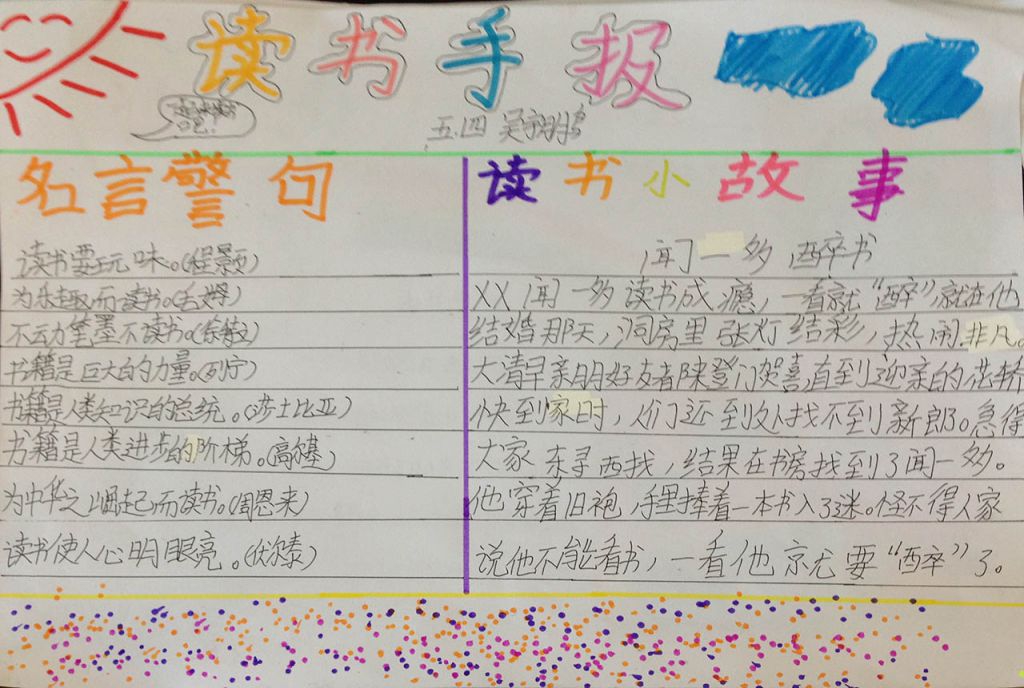 读书手报
五.四 吴宗鹏
名言警句
读书要玩味。(程景颐)
为乐趣而读书。(毛姆)
不动笔墨不读书。(徐特立)
书籍是巨大的力量。(列宁)
书籍是人类知识的总统。(莎士比亚)
书籍是人类进步的阶梯。(高尔基)
为中华之崛起而读书。(周恩来)
读书使人心明眼亮。(伏尔泰)
读书小故事
闻一多醉书
XX闻一多读书成瘾,一看就“醉”,就在他
结婚那天,洞房里张灯结彩,热闹非凡。
大清早亲朋好友都来登门贺喜,直到迎亲的花轿
快到家时,人们还到处找不到新郎。急得
大家东寻西找,结果在书房找到了闻一多。
他穿着旧袍,手里捧着一本书入了迷。怪不得人家
说他不能看书,一看他就要“醉”了。